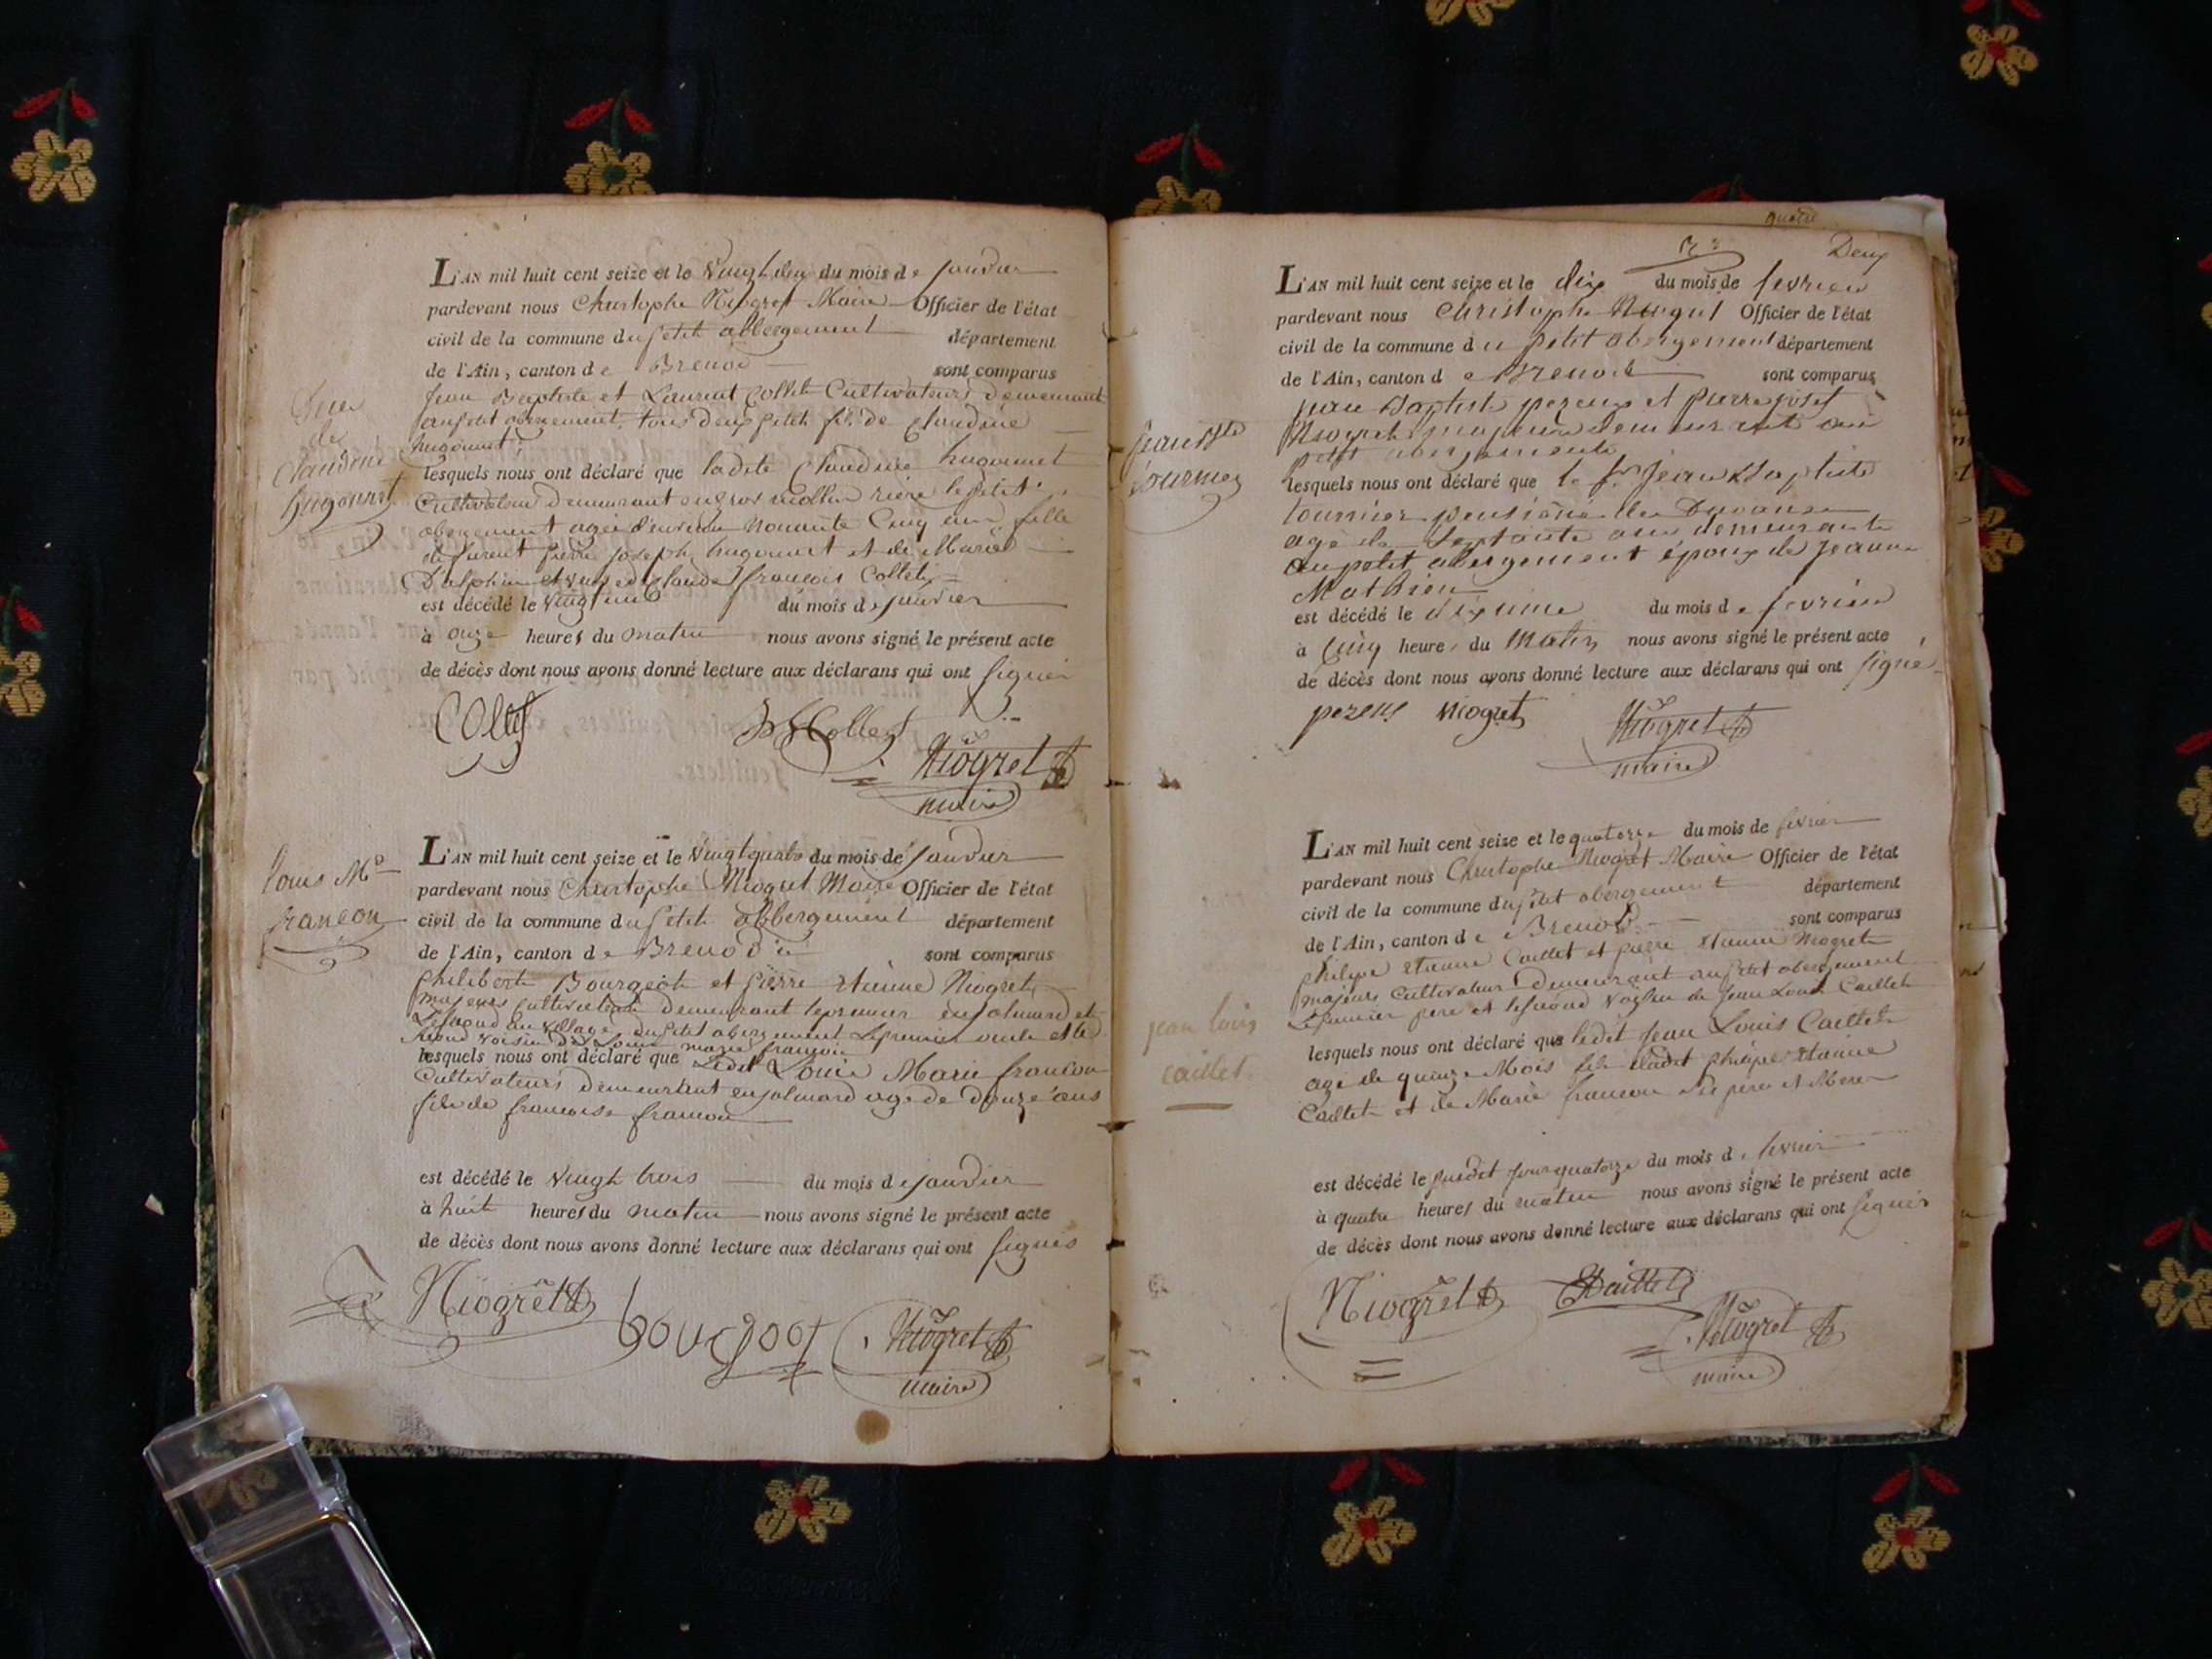 L'AN mil huit cent seize et le vingt deux du mois de janvier
pardevant nous Christophe Niogret Maire Officier de l'état
civil de la commune du petit abbergement département
de l'Ain, canton de Brenod sont comparus
jean Baptiste et Laurent Collet Cultivateurs demeurant
au petit abergement, tous deux petit fils de Claudine
hugonnet
Claudine
hugonnet
lesquels nous ont déclaré que ladite Claudine hugonnet
Cultivateur demeurant rière le petit
abergement agée d'environ nonante Cinq ans fille
de furent pierre joseph hugonnet et de Marie
Dalphin et François Collet
est décédé le vingt un du mois de janvier
à onze heures du matin nous avons signé le présent acte
de décès dont nous avons donné lecture aux déclarans qui ont signés
Collet
Collet
Niogret
maire
Louis Me
francon
L'AN mil huit cent seize et le vingt quatre du mois de janvier
pardevant nous Christophe Niogret Maire Officier de l'état
civil de la commune du petit abbergement département
de l'Ain, canton de Brenod sont comparus
philibert Bourgeot et pierre etienne Niogret
majeurs cultivateurs demeurant le premier en jalinard et
Le second au village du petit abergement Le premier oncle et le
second voisin de Louis marie francon
lesquels nous ont déclaré que Ledit Louis Marie francon
Cultivateurs demeurant en jalinard age de douze ans
fils de francoise francon
est décédé le vingt trois du mois de janvier
à huit heures du matin nous avons signé le présent acte
de décès dont nous avons donné lecture aux déclarans qui ont signés
Niogret
bourgoot
Niogret
maire
Deux
L'AN mil huit cent seize et le dix du mois de fevrier
pardevant nous Christophe Niogret Officier de l'état
civil de la commune du petit abergement département
de l'Ain, canton de Brenod sont comparus
jean Baptiste pezeux et pierre josef
Niogret majeurs demeurant au
petit abergement
jean Bte
tournier
lesquels nous ont déclaré que le sr jean Baptiste
tournier
agé de septante ans demeurant
au petit abergement époux de jeanne
Mathieu
est décédé le dixieme du mois de fevrier
à Cinq heures du Matin nous avons signé le présent acte
de décès dont nous avons donné lecture aux déclarans qui ont signé
pezeux Niogret
Niogret
maire
L'AN mil huit cent seize et le quatorze du mois de fevrier
pardevant nous Christophe Niogret Maire Officier de l'état
civil de la commune du petit abergement département
de l'Ain, canton de Brenod sont comparus
philipe etienne Caillet et pierre etienne Niogret
majeurs Cultivateurs demeurant au petit abergement
Le premier pere et le second de jean Louis Caillet
jean louis
caillet
lesquels nous ont déclaré que ledit jean Louis Caillet
agé de quinze Mois fils dudit philipe etienne
Caillet et de Marie francon ses père et Mere
est décédé le susdit jour quatorze du mois de fevrier
à quatre heures du matin nous avons signé le présent acte
de décès dont nous avons donné lecture aux déclarans qui ont signés
Niogret Caillet
Niogret
maire